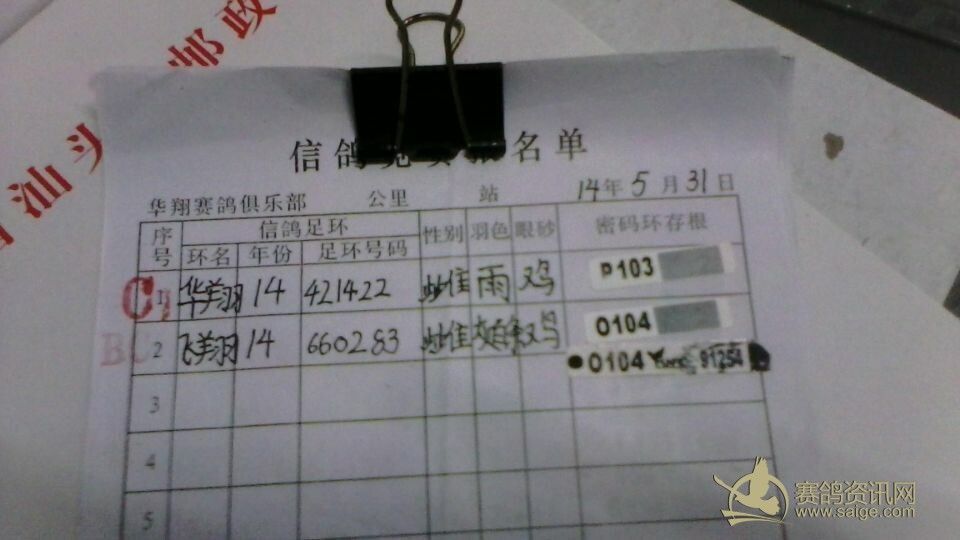 邮政
汕头
信鸽竞 名单
华翔赛鸽俱乐部 公里 站 14年5月31日
序号 信鸽足环 性别 羽色 眼砂 密码环存根
环名 年份 足环号码
C 1 华翔 14 421422 雌 雨 鸡 P103
B 2 飞翔 14 660283 雌 鸡 O104
O104 91254
3
4
5
赛鸽资讯网
www.saige.com